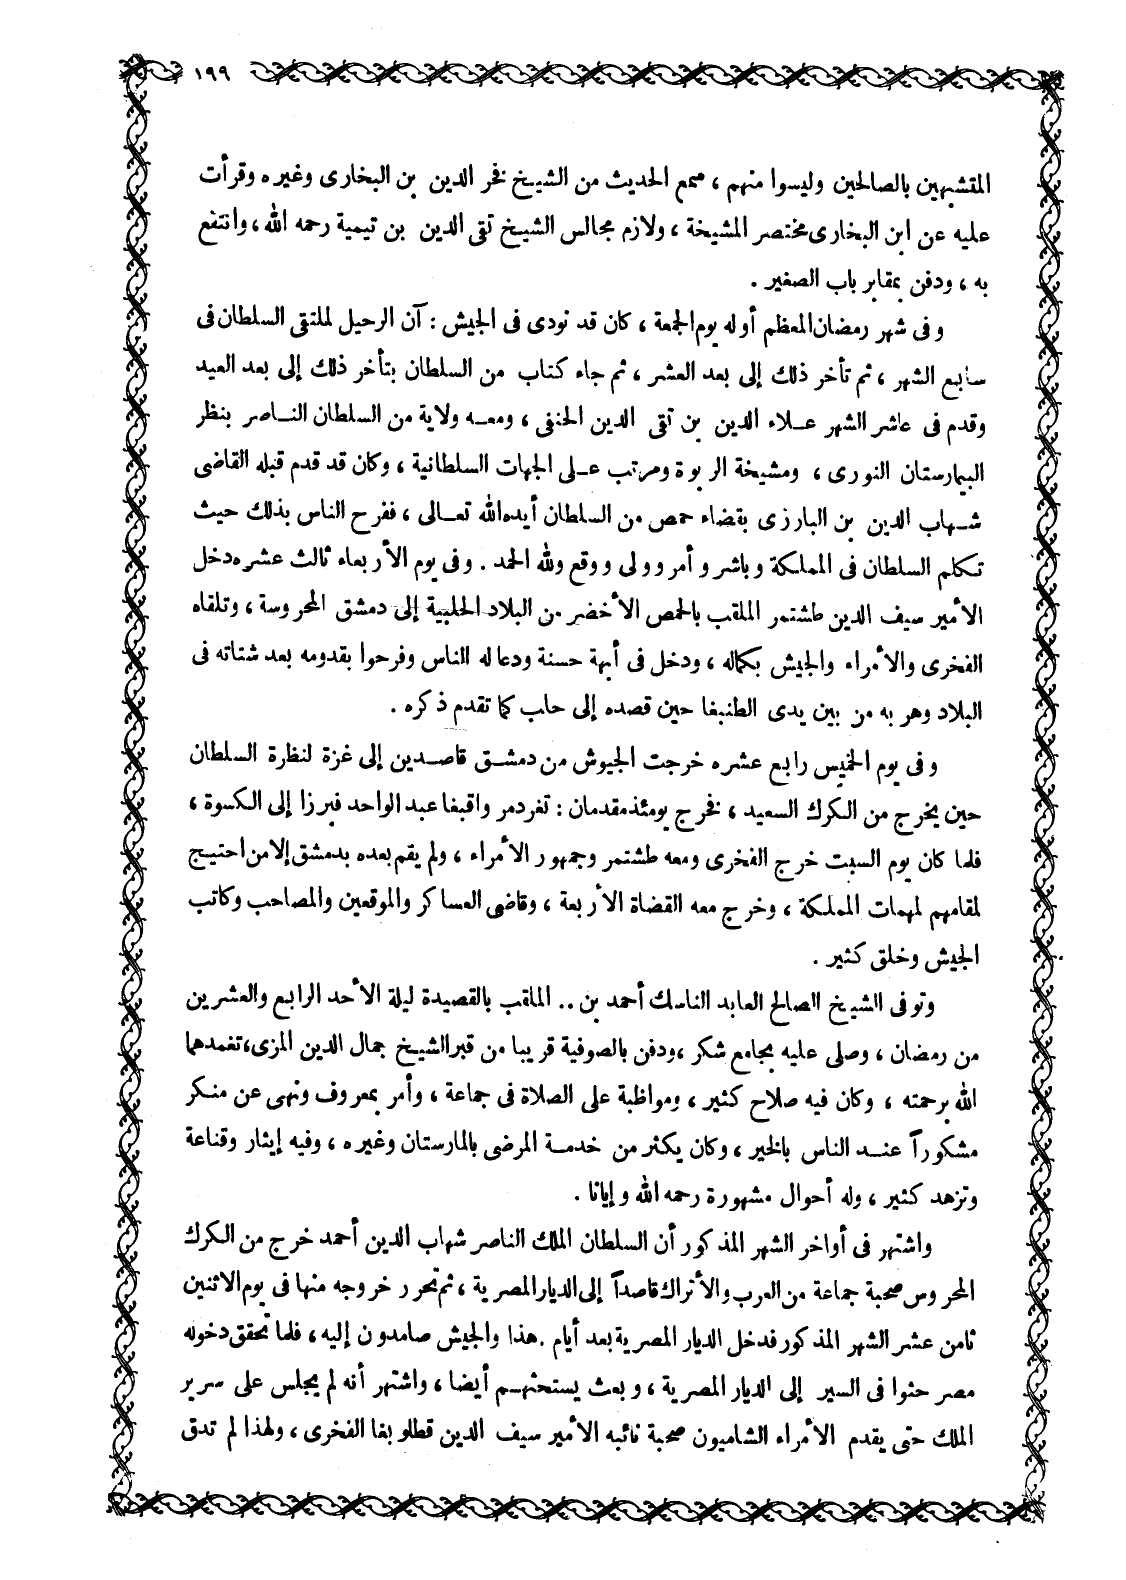 ١٩٩
المتشبهين بالصالحين وليسوا منهم ، سمع الحديث من الشيخ فخر الدين بن البخارى وغيره وقرأت
عليه عن ابن البخارى مختصر المشيخة ، ولازم مجالس الشيخ تقى الدين بن تيمية رحمه الله ، وانتفع
به ، ودفن بمقابر باب الصغير .
وفى شهر رمضان المعظم أوله يوم الجمعة ، كان قد نودى فى الجيش : آن الرحيل لملتقى السلطان فى
سابع الشهر ، ثم تأخر ذلك إلى بعد العشر ، ثم جاء كتاب من السلطان بتأخر ذلك إلى بعد العيد
وقدم فى عاشر الشهر علاء الدين بن تقى الدين الحنفى ، ومعه ولاية من السلطان الناصر بنظر
البيمارستان النورى ، ومشيخة الربوة ومرتب على الجهات السلطانية ، وكان قد قدم قبله القاضى
شهاب الدين بن البارزى بقضاء حمص من السلطان أيده الله تعالى ، ففرح الناس بذلك حيث
تكلم السلطان فى المملكة وباشر وأمر وولى ووقع ولله الحمد . وفى يوم الأربعاء ثالث عشره دخل
الأمير سيف الدين طشتمر الملقب بالحمص الأخضر من البلاد الحلبية إلى دمشق المحروسة ، وتلقاه
الفخرى والأمراء والجيش بكماله ، ودخل فى أبهة حسنة ودعا له الناس وفرحوا بقدومه بعد شتاته فى
البلاد وهربه من بين يدى الطنبغا حين قصده إلى حلب كما تقدم ذكره .
وفى يوم الخميس رابع عشره خرجت الجيوش من دمشق قاصدين إلى غزة لنظرة السلطان
حين يخرج من الكرك السعيد ، فخرج يومئذ مقدمان : تغردمر واقبغا عبد الواحد فبرزا إلى الكسوة ،
فلما كان يوم السبت خرج الفخرى ومعه طشتمر وجمهور الأمراء ، ولم يقم بعده بدمشق إلا من احتيج
لمقامهم لمهمات المملكة ، وخرج معه القضاة الأربعة ، وقاضى العساكر والموقعين والمصاحب وكاتب
الجيش وخلق كثير .
وتوفى الشيخ الصالح العابد الناسك أحمد بن .. الملقب بالقصيدة ليلة الأحد الرابع والعشرين
من رمضان ، وصلى عليه بجامع شكر ، ودفن بالصوفية قريبا من قبر الشيخ جمال الدين المزى ، تغمدهما
الله برحمته ، وكان فيه صلاح كثير ، ومواظبة على الصلاة فى جماعة ، وأمر بمعروف ونهى عن منكر
مشكوراً عند الناس بالخير ، وكان يكثر من خدمة المرضى بالمارستان وغيره ، وفيه إيثار وقناعة
وتزهد كثير ، وله أحوال مشهورة رحمه الله وإيانا .
واشتهر فى أواخر الشهر المذكور أن السلطان الملك الناصر شهاب الدين أحمد خرج من الكرك
المحروس صحبة جماعة من العرب والأتراك قاصداً إلى الديار المصرية ، ثم تحرر خروجه منها فى يوم الاثنين
ثامن عشر الشهر المذكور فدخل الديار المصرية بعد أيام . هذا والجيش صامدون إليه ، فلما تحقق دخوله
مصر حثوا فى السير إلى الديار المصرية ، وبعث يستحثهم أيضا ، واشتهر أنه لم يجلس على سرير
الملك حتى يقدم الأمراء الشاميون صحبة نائبه الأمير سيف الدين قطلوبغا الفخرى ، ولهذا لم تدق